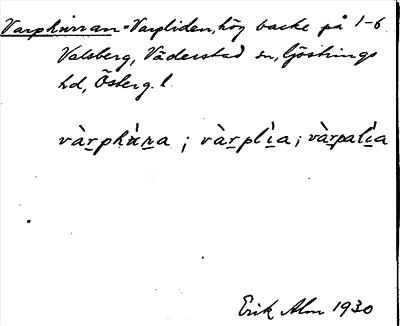 Varphùrran = Varpliden, hög backe på 1-6
Valsberg, Väderstad sn, Göstrings
hd, Österg. l.
vàrphùra ; vàrplìa ; vàrpalìa
Erik Alm 1930